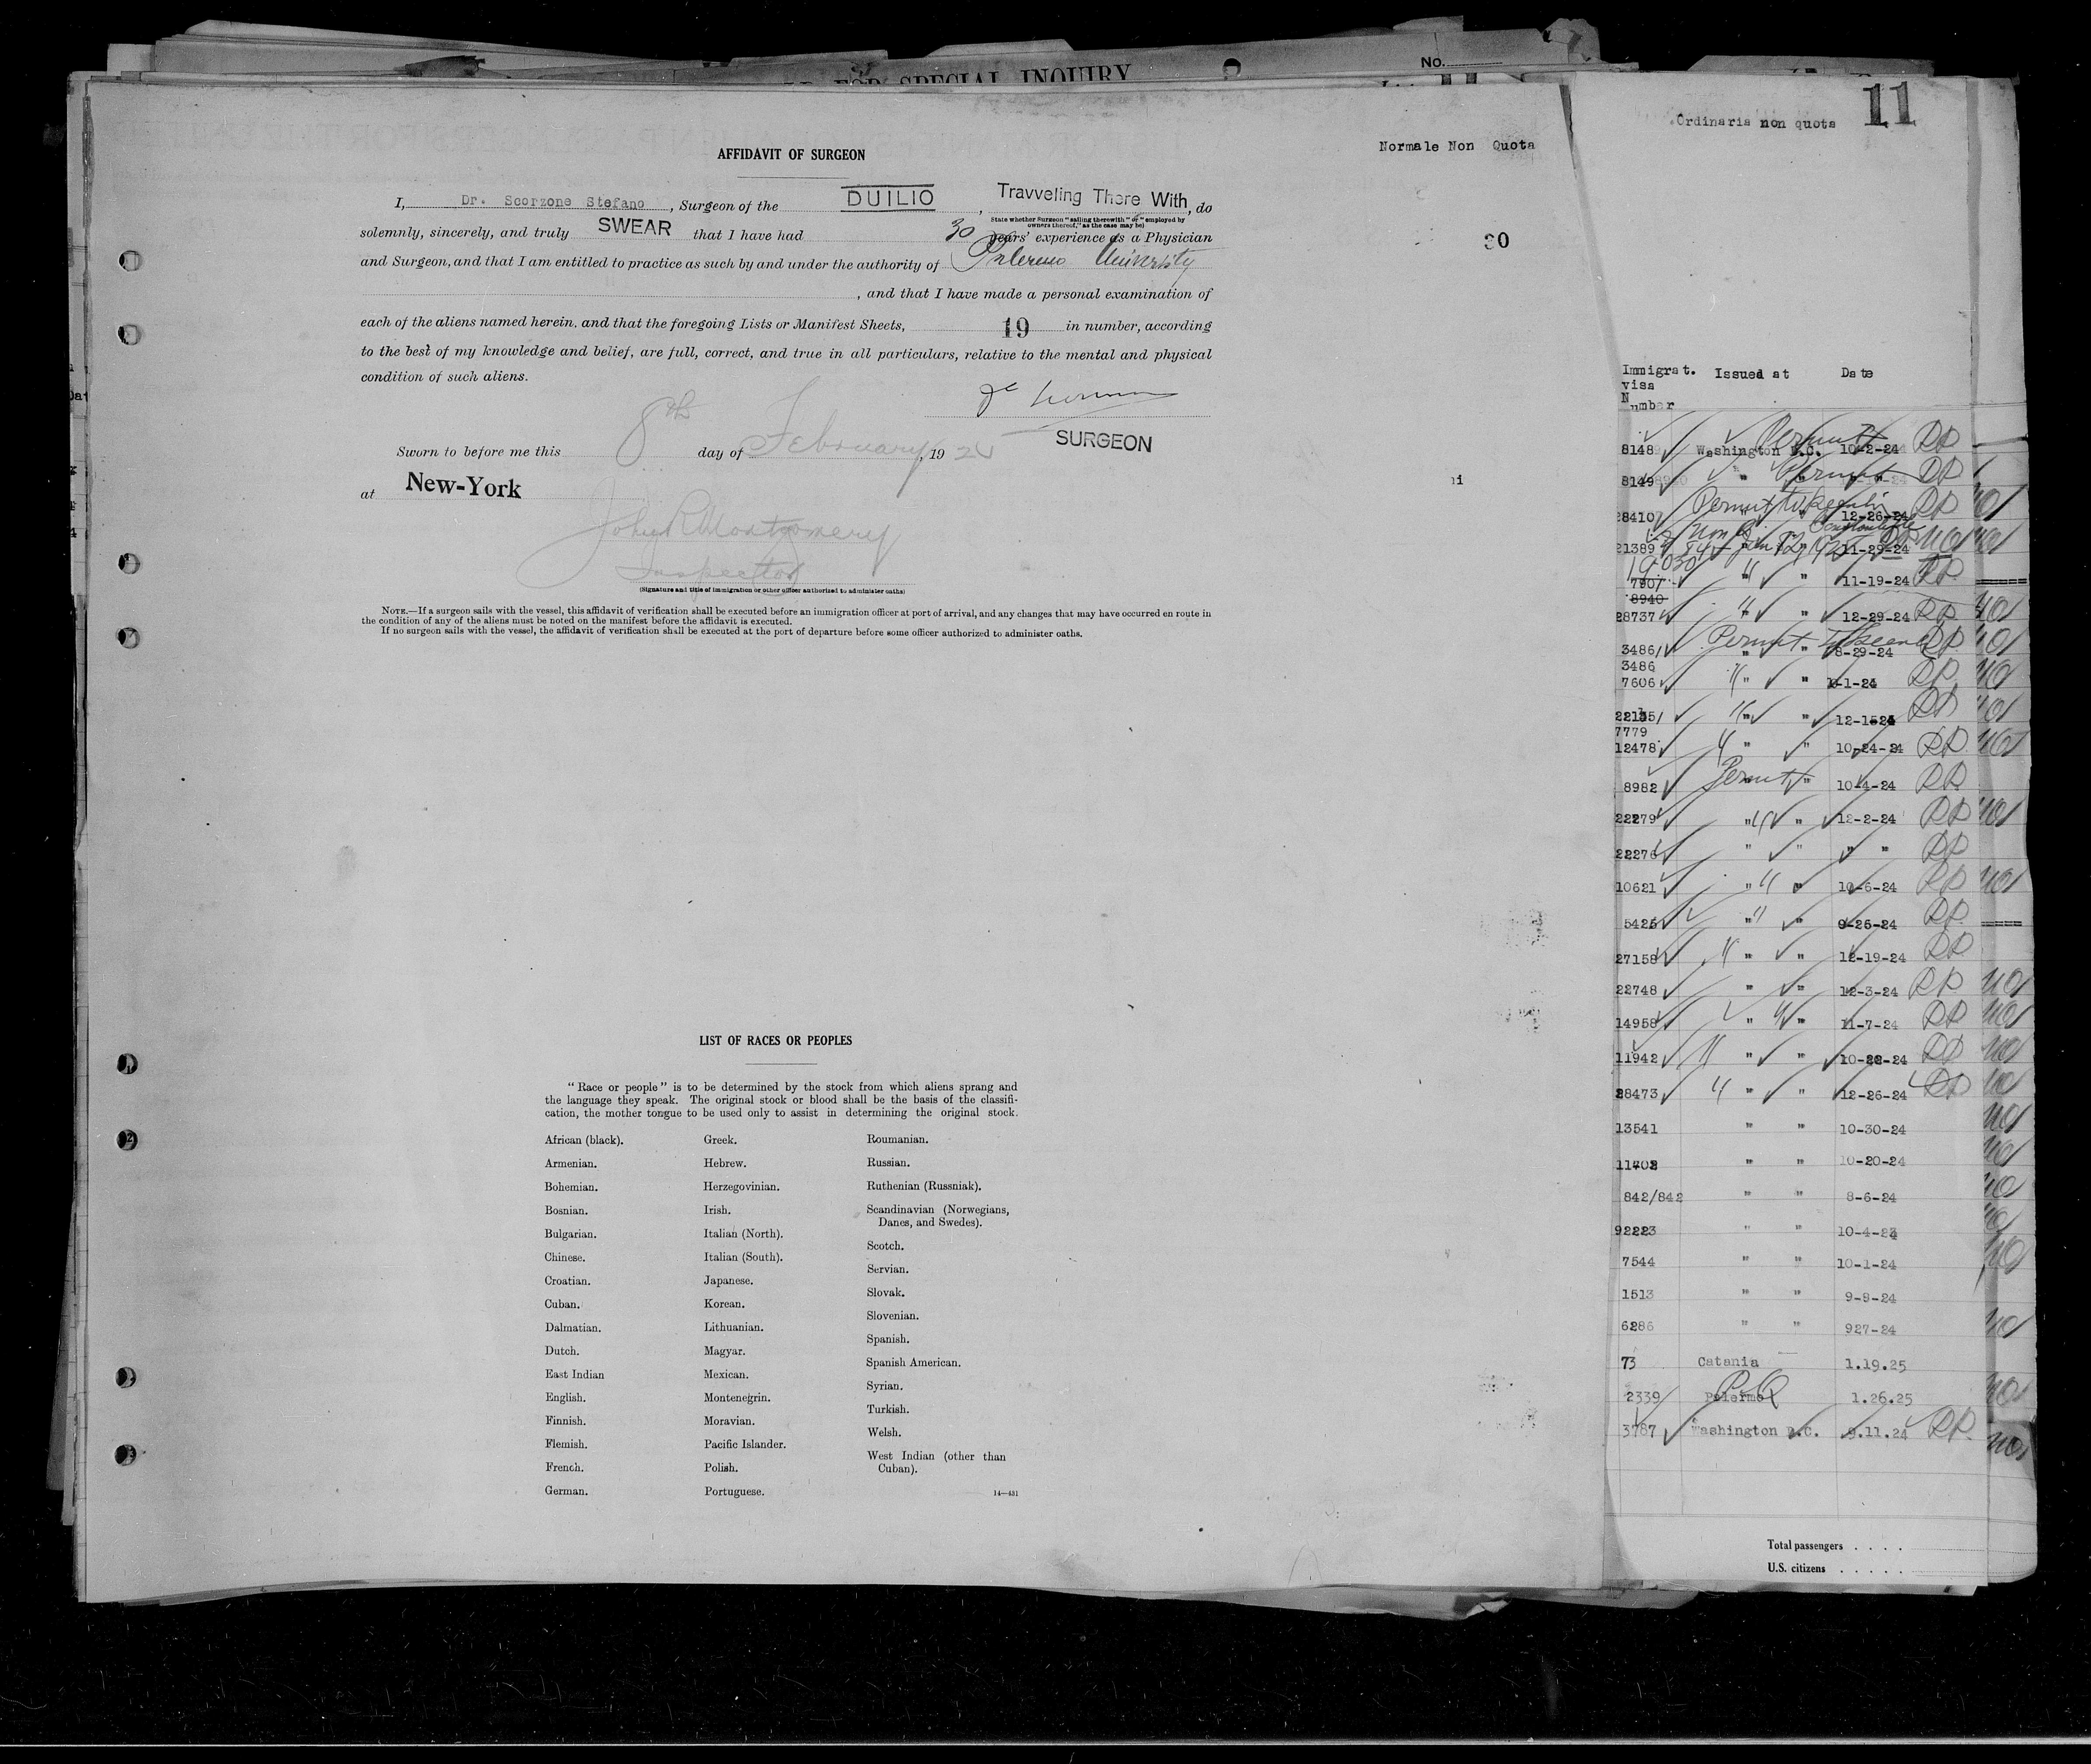 FOR SPECIAL INQUIRY
No.
11
Ordinaria non quota
Normale Non Quota
AFFIDAVIT OF SURGEON
I, Dr. Scorzone Stefano, Surgeon of the DUILIO, Travveling There With, do
State whether Surgeon "sailing therewith" or "employed by
owners thereof," as the case may be)
solemnly, sincerely, and truly SWEAR that I have had 30 years' experience as a Physician
and Surgeon, and that I am entitled to practice as such by and under the authority of Palermo University
, and that I have made a personal examination of
each of the aliens named herein, and that the foregoing Lists or Manifest Sheets, 19 in number, according
to the best of my knowledge and belief, are full, correct, and true in all particulars, relative to the mental and physical
condition of such aliens.
SURGEON
Sworn to before me this 8th day of February, 1925
at New-York
John R Montgomery
Inspector
(Signature and title of immigration or other officer authorized to administer oaths)
NOTE.—If a surgeon sails with the vessel, this affidavit of verification shall be executed before an immigration officer at port of arrival, and any changes that may have occurred en route in
the condition of any of the aliens must be noted on the manifest before the affidavit is executed.
If no surgeon sails with the vessel, the affidavit of verification shall be executed at the port of departure before some officer authorized to administer oaths.
30
LIST OF RACES OR PEOPLES
"Race or people" is to be determined by the stock from which aliens sprang and
the language they speak. The original stock or blood shall be the basis of the classifi-
cation, the mother tongue to be used only to assist in determining the original stock.
African (black).
Armenian.
Bohemian.
Bosnian.
Bulgarian.
Chinese.
Croatian.
Cuban.
Dalmatian.
Dutch.
East Indian
English.
Finnish.
Flemish.
French.
German.
Greek.
Hebrew.
Herzegovinian.
Irish.
Italian (North).
Italian (South).
Japanese.
Korean.
Lithuanian.
Magyar.
Mexican.
Montenegrin.
Moravian.
Pacific Islander.
Polish.
Portuguese.
Roumanian.
Russian.
Ruthenian (Russniak).
Scandinavian (Norwegians,
Danes, and Swedes).
Scotch.
Servian.
Slovak.
Slovenian.
Spanish.
Spanish American.
Syrian.
Turkish.
Welsh.
West Indian (other than
Cuban).
14—431
Immigrat. Issued at Date
visa
Number
8148 Washington D.C. Permit 10-2-24 RP
8149 " Permit " RP
28410 Permit 12-26-24 RP
21389 11-29-24
7907 " " 11-19-24 RP
8940
28737 " " 12-29-24 RP
3486/ Permit " 8-29-24 RP
3486
7606 " " 1-24 RP
12-1-24 RP
7779
12478 " " 10-24-24 RP
8982 Permit " 10-4-24 RP
22279 " " 12-2-24 RP
22276 " " " " RP
10621 " " 10-6-24 RP
5425 " " 9-26-24 RP
27158 " " 12-19-24 RP
22748 " " 12-3-24 RP
14958 " " 11-7-24 RP
11942 " " 10-22-24 RP
28473 " " 12-26-24 RP
13541 " " 10-30-24
" " 10-20-24
842/842 " " 8-6-24
" " 10-4-24
7544 " " 10-1-24
1513 " " 9-9-24
6286 " " 927-24
73 Catania 1.19.25
2339 Palermo 1.26.25
3787 Washington D.C. 9.11.24 RP
Total passengers . . . .
U.S. citizens . . . . .